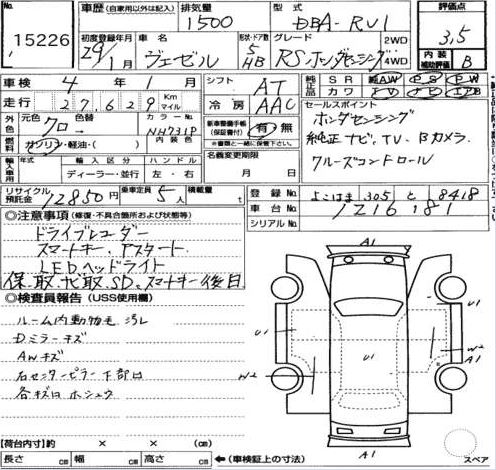 15226
車歴 (自家用以外は記入) 排気量 1500 型式 DBA-RU1 評価点 3,5
初度登録年月 29/1月 車名 ヴェゼル 形状・ドア数 5 HB グレード RSホンダセンシング 2WD 4WD 内装補助評価 B
車検 4年1月 シフト AT
SR AW PS PW
走行 27,629 Km マイル 冷房 AAC カワ TV ナビ エアB
外色 元色 クロ 色替 カラーNo. NH731P 内装色
新車整備手帳(保証書付) 有 無
※書面と一緒に保管して下さい。
燃料 ガソリン・軽油・( )
名義変更期限 月 日
セールスポイント
ホンダセンシング
純正ナビ、TV、Bカメラ
クルーズコントロール
輸入車 年式 輸入区分 ディーラー・並行 ハンドル 左・右
リサイクル預託金 12850円 乗車定員 5人 積載量 t
登録No. よこはま 305 と 8418
車台No. 1216181
シリアルNo.
◎注意事項 (修復・不具合箇所および状態等)
ドライブレコーダー
スマートキー、アスタート
LEDヘッドライト
保、取、地取、SD、スマートキー後日
◎検査員報告 (USS使用欄)
ルーム内動物毛 汚レ
Dミラーキズ
AWキズ
右センターピラー下部凹
各キズ凹ホシュウ
A1
U1
U1
U1
W2
W2
A1
スペア
【荷台内寸】 × × (cm)
長さ cm 幅 cm 高さ cm ←(車検証上の寸法)